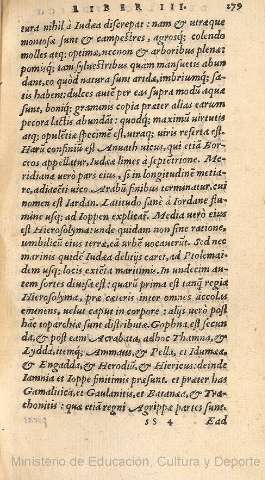 LIBER III. 279
tura nihil à Iudæa discrepat: nam & utræque
montosæ sunt & campestres, agrosq; colendo
molles atq; optimæ, necnon & arboribus plenæ
pomisq; tam sylvestribus quam mansuetis abun
dant, eo quòd natura sunt aridæ, imbriumq; sa-
tis habent: dulces autē per eas supra modū aquæ
sunt, boniq; graminis copia præter alias earum
pecora lactis abundāt: quodq; maximū virtutis
atq; opulētiæ specimē est, utraq; viris referta est.
Harū confiniū est Anuath vicus, qui etiā Bor-
ceos appellatur, Iudææ limes à septētrione. Me-
ridiana verò pars eius, si in longitudinē metia-
re, adiacēti vico Arabū finibus terminatur, cui
nomen est Iardan. Latitudo sanè à Iordane flu-
mine usq; ad Ioppen explicat̄. Media verò eius
est Hierosolyma: unde quidam non sine ratione,
umbilicū eius terræ, eā urbē vocauerūt. Sed nec
marinis quidē Iudæa delitijs caret, ad Ptolemai
dem usq; locis extēta maritimis. In undecim au-
tem sortes diuisa est: quarū prima est tanq̄ regia
Hierosolyma, præ cæteris inter omnes accolas
eminens, velut caput in corpore: alijs verò post
hāc toparchiæ sunt distributæ. Gophna est secun
da, & post eam Acrabata, ad hoc Thamna, &
Lydda, itemq; Ammaus, & Pella, et Idumæa,
& Engadda, & Herodiū, & Hiericus: deinde
Iamnia et Ioppe finitimis præsunt. et præter has
Gamalitica, et Gaulanitis, et Batanæa, et Tra-
chonitis: quæ etiā regni Agrippæ partes sunt.
SS 4 Ead
Ministerio de Educación, Cultura y Deporte